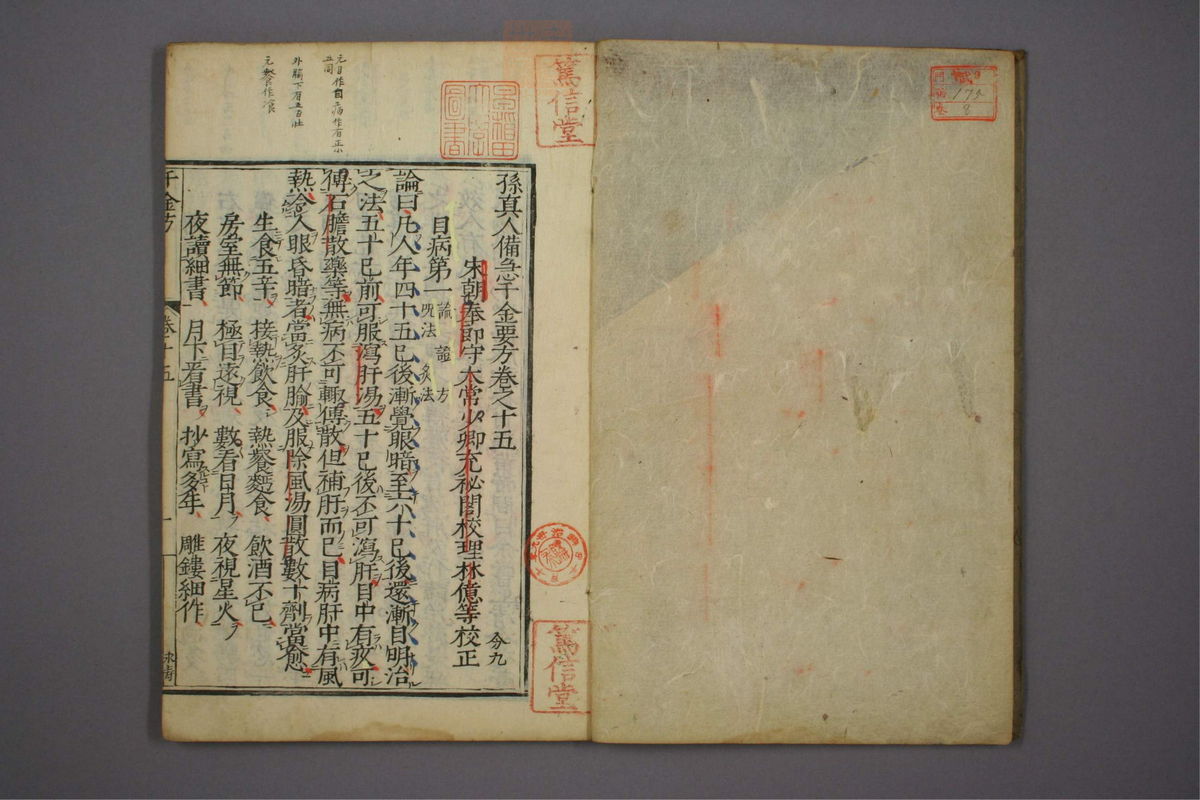 孫真人備急千金要方卷之十五
分九
宋朝奉郎守太常少卿充祕閣校理林億等校正
目病第一
論 證 方
呪法 灸法
論曰凡人年四十五已後漸覺眼暗至六十已後還漸自明治
之法五十已前可服瀉肝湯五十已後不可瀉肝目中有疾可
傅石膽散藥等無病不可輒傅散但補肝而已目病肝中有風
熱令人眼昏暗者當灸肝腧及服除風湯圓散數十劑當愈
生食五辛 接熱飲食 熱餐麵食 飲酒不已
房室無節 極目遠視 數看日月 夜視星火
夜讀細書 月下看書 抄寫多年 雕鏤細作
千金方 卷十五 一
篤信堂
篤信堂
圖書
175
8
外腧下有五百壯
元餐作飡